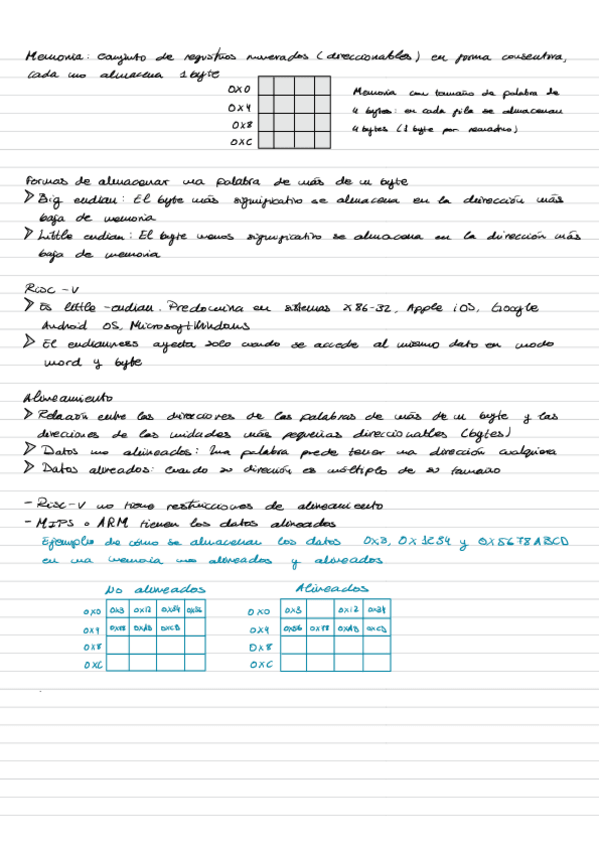 Memoria: conjunto de registros numerados (direccionables) en forma consecutiva,
cada uno almacena 1 byte
0x0
0x4
0x8
0xC
Memoria con tamaño de palabra de
4 bytes: en cada fila se almacenan
4 bytes (1 byte por recuadro)
Formas de almacenar una palabra de más de un byte
➤ Big endian: El byte más significativo se almacena en la dirección más
baja de memoria
➤ Little endian: El byte menos significativo se almacena en la dirección más
baja de memoria
Risc-V
➤ Es little-endian. Predomina en sistemas x86-32, Apple iOS, Google
Android OS, Microsoft Windows
➤ El endianness afecta solo cuando se accede al mismo dato en modo
word y byte
Alineamiento
➤ Relación entre las direcciones de las palabras de más de un byte y las
direcciones de las unidades más pequeñas direccionables (bytes)
➤ Datos no alineados: Una palabra puede tener una dirección cualquiera
➤ Datos alineados: Cuando su dirección es múltiplo de su tamaño
- Risc-V no tiene restricciones de alineamiento
- MIPS o ARM tienen los datos alineados
Ejemplo de cómo se almacenan los datos 0x3, y 0x5678ABCD
en una memoria no alineados y alineados
No alineados
0x0 0x3 0x12 0x56
0x4 0xAB 0xCD
0x8
0xC
Alineados
0x0 0x3 0x12 0x34
0x4 0x56 0x78 0xAB 0xCD
0x8
0xC